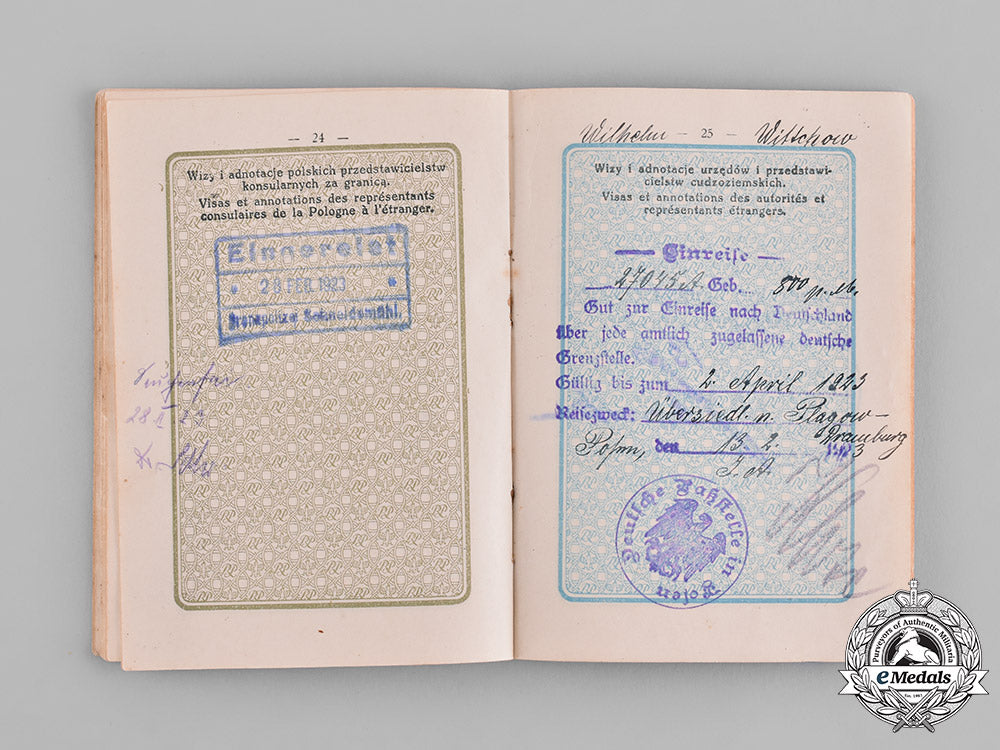 — 24 —
Wizy i adnotacje polskich przedstawicielstw
konsularnych za granicą.
Visas et annotations des représentants
consulaires de la Pologne à l'étranger.
Eingereist
* 28 FEB. 1923 *
Grenzpolizei Schneidemühl.
Wilhelm — 25 — Wittchow
Wizy i adnotacje urzędów i przedstawi-
cielstw cudzoziemskich.
Visas et annotations des autorités et
représentants étrangers.
— Einreise —
27045A Geb. 800 p.M.
Gut zur Einreise nach Deutschland
über jede amtlich zugelassene deutsche
Grenzstelle.
Gültig bis zum 2. April 1923
Reisezweck: Übersiedl. n. Plagow-
Dramburg
Posen, den 13. 2. 1923
I. A.
Deutsche Paßstelle in Posen
Purveyors of Authentic Militaria
eMedals